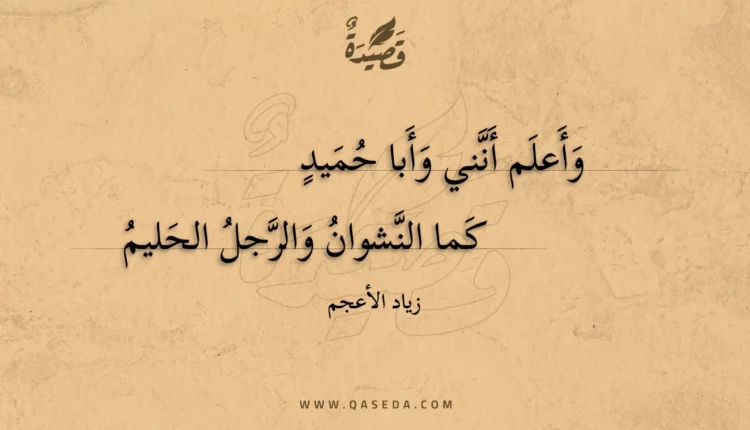 قَصِيدَةٌ
وَأَعلَم أَنَّني وَأَبا حُمَيدٍ
كَما النَّشوانُ وَالرَّجلُ الحَليمُ
زياد الأعجم
WWW.QASEDA.COM